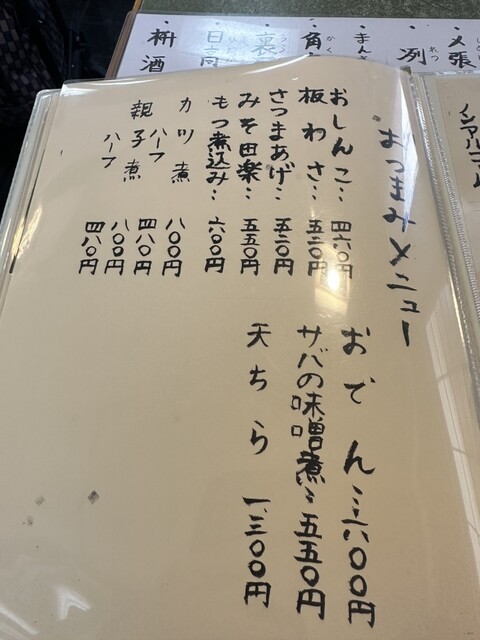 ノンアルコール
おつまみメニュー
おしんこ‥四六〇円
板わさ‥五二〇円
さつまあげ‥五二〇円
みそ田楽‥五五〇円
もつ煮込み‥六〇〇円
カツ煮 八〇〇円
ハーフ 四八〇円
親子煮 八〇〇円
ハーフ 四八〇円
おでん…六〇〇円
サバの味噌煮…五五〇円
天ちら 一、三〇〇円
・〆張
・洌 れつ
・まんさ
・角 かく
・裏
・枡酒